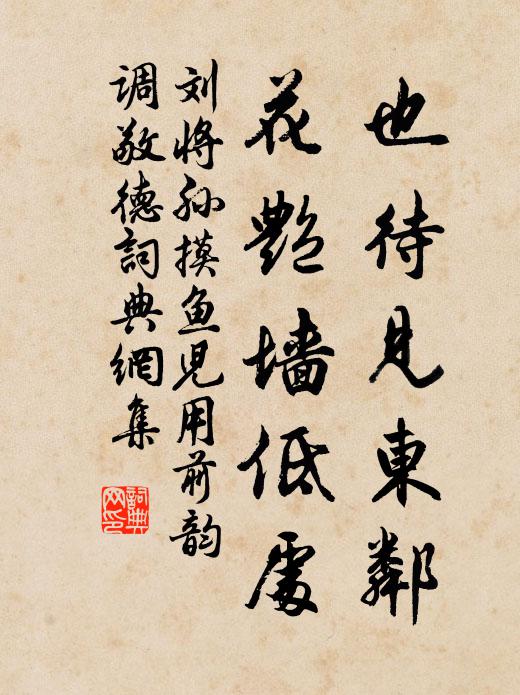 也待見東鄰
花艷墻低處
刘將孙摸鱼児用前韵
调敬德詞典網集
詞典网印